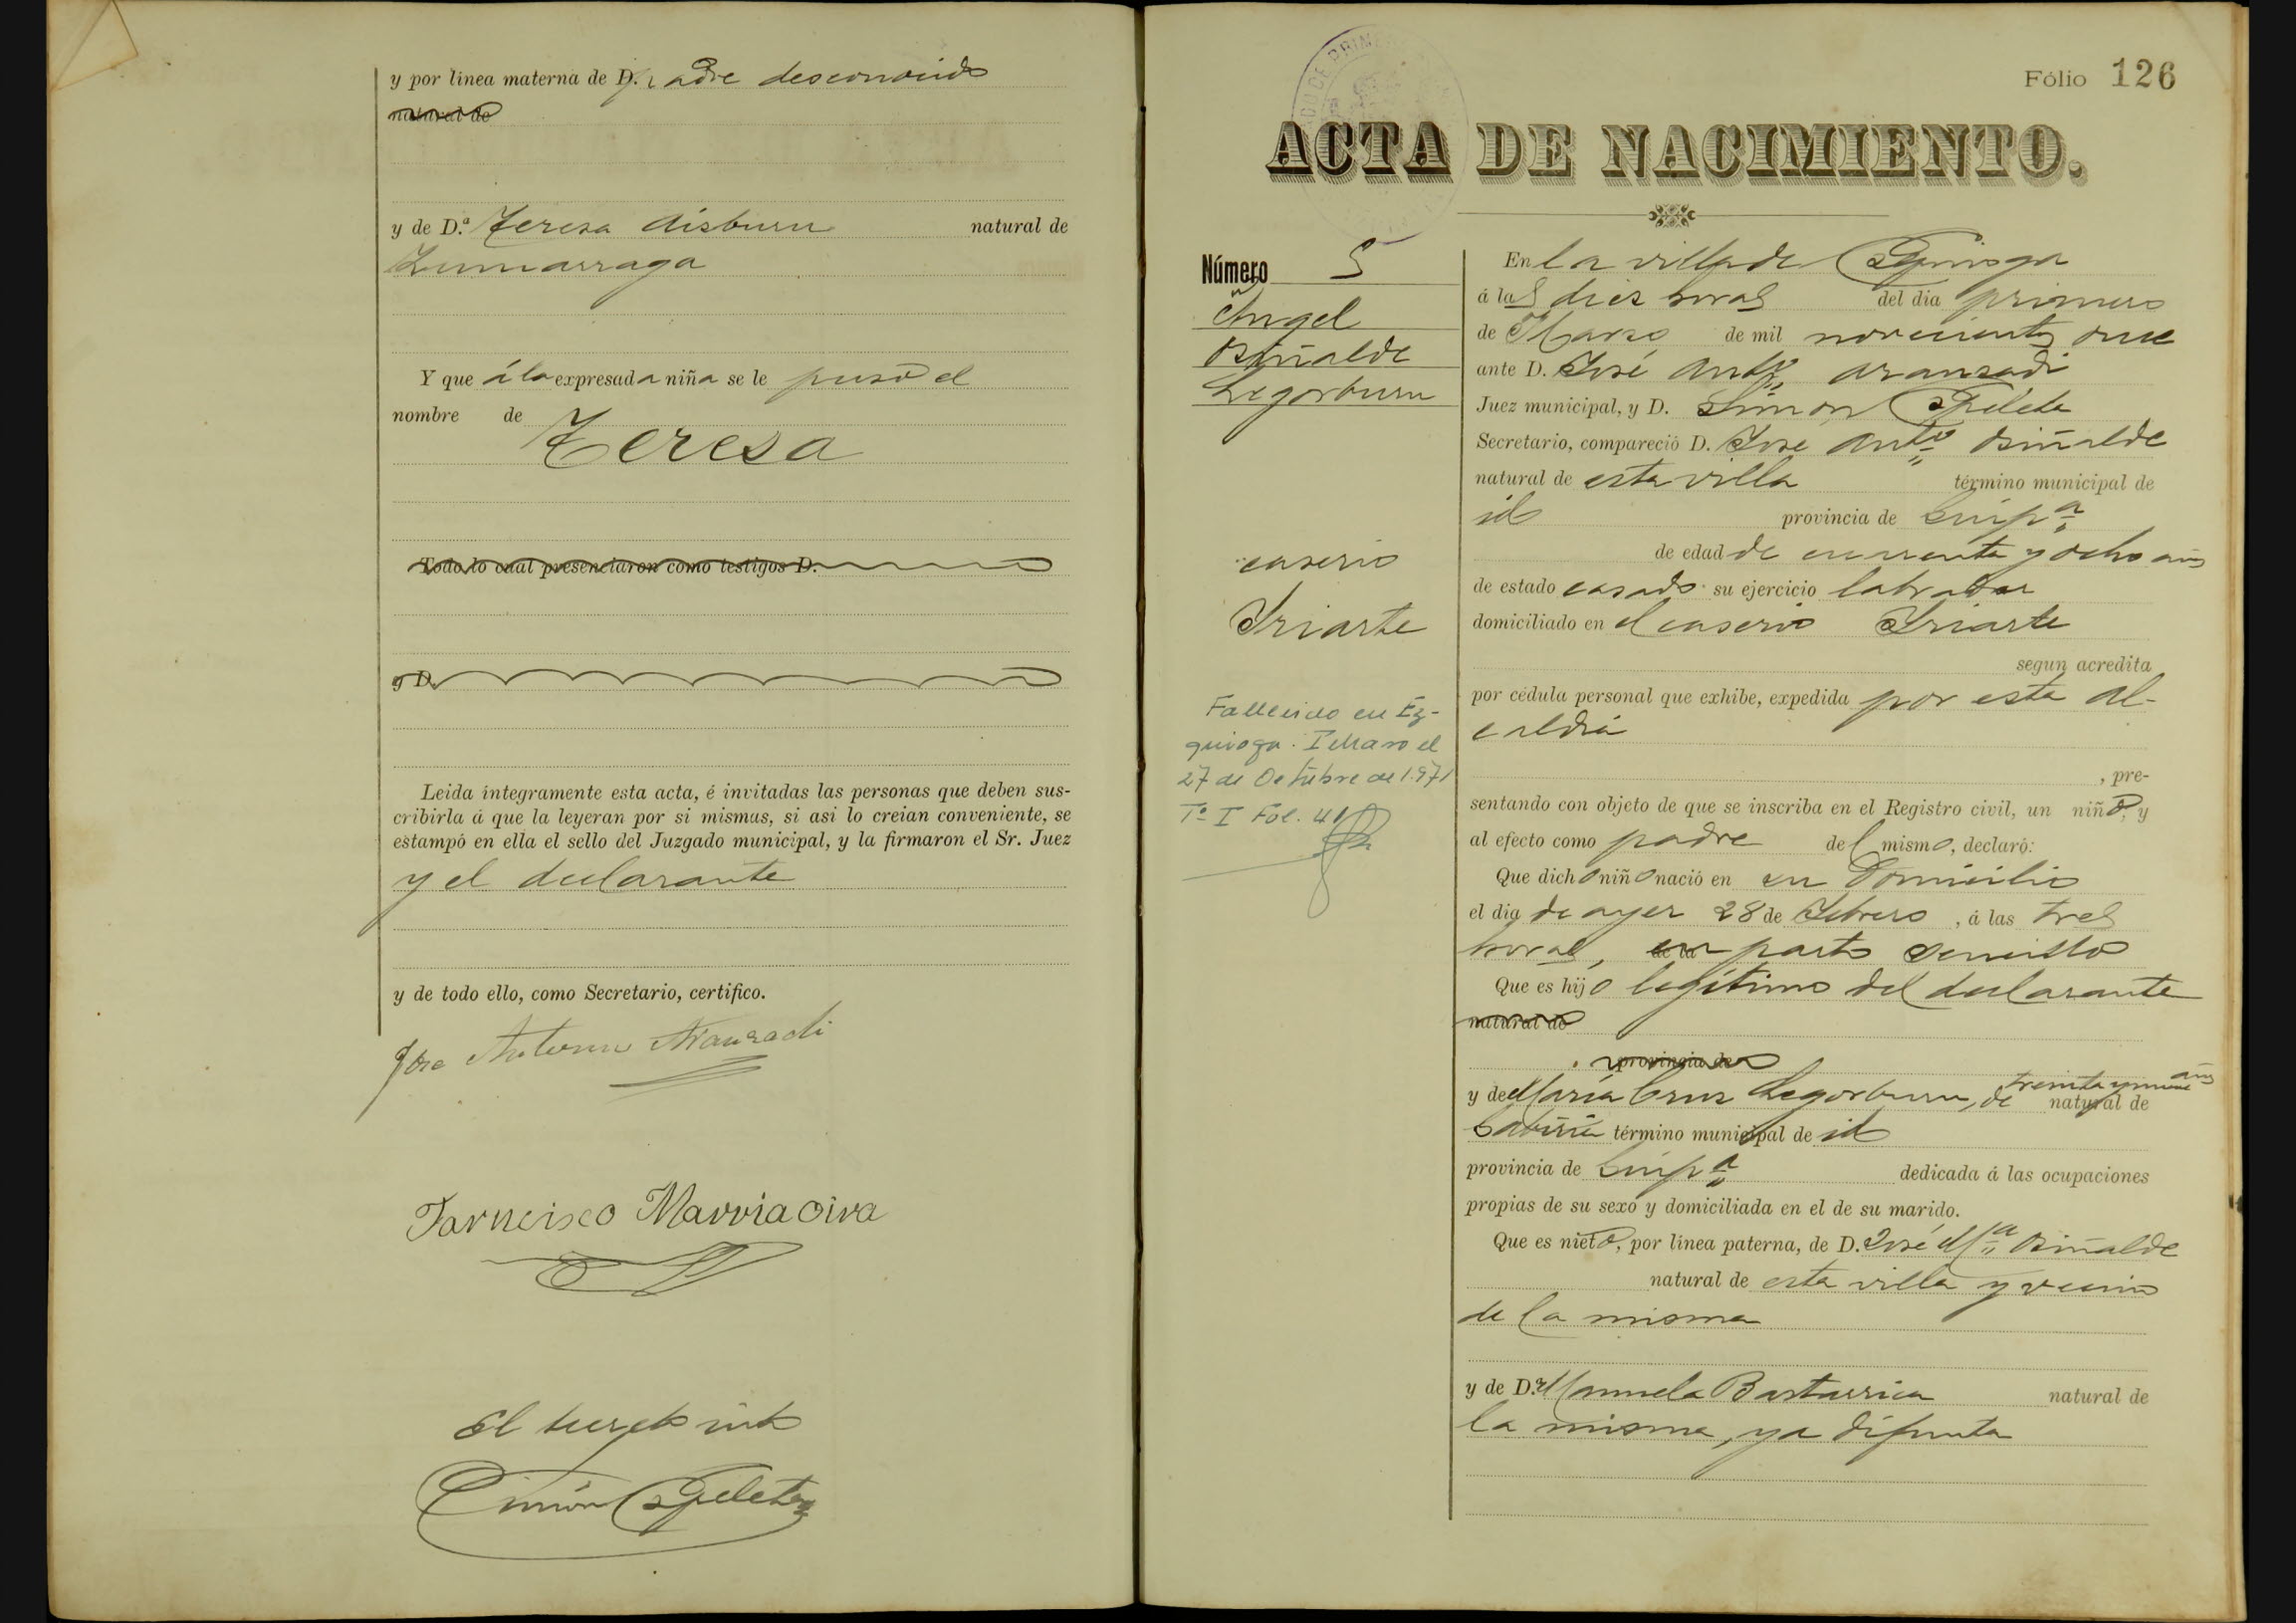 y por línea materna de D. padre desconocido
natural de
y de D.ª Teresa Aisburu natural de
Zumarraga
Y que á la expresada niña se le puso el
nombre de
Teresa
Todo lo cual presenciaron como testigos D.
y D.
Leida íntegramente esta acta, é invitadas las personas que deben sus-
cribirla á que la leyeran por sí mismas, si asi lo creian conveniente, se
estampó en ella el sello del Juzgado municipal, y la firmaron el Sr. Juez
y el declarante
y de todo ello, como Secretario, certifico.
Jose Antonio Aranzadi
Farncisco Marviaoira
El
Simón Epelete
Fólio 126
ACTA DE NACIMIENTO.
Número 5
Ángel
Osiñalde
Legorburu
caserio
Iriarte
Fallecido en Ez-
quioga-Itsaso el
27 de Octubre de 1.971
Tº I Fol. 41
En la villa de Ezquioga
á las diez horas del dia primero
de Marzo de mil novecientos once
ante D. José Antº Aranzadi
Juez municipal, y D. Simón Epelete
Secretario, compareció D. José Antº Osiñalde
natural de esta villa término municipal de
id provincia de Guipª
de edad de cuarenta y ocho años
de estado casado su ejercicio labrador
domiciliado en el caserio Iriarte
segun acredita
por cédula personal que exhibe, expedida por esta Al-
caldia
, pre-
sentando con objeto de que se inscriba en el Registro civil, un niño, y
al efecto como padre del mismo, declaró:
Que dicho niño nació en su domicilio
el dia de ayer 28 de Febrero, á las tres
horas, de la en parto sencillo
Que es hijo legítimo del declarante
natural de
provincia de
y de María Cruz Legorburu, de treinta y nueve años natural de
Gabiria término municipal de id
provincia de Guipª dedicada á las ocupaciones
propias de su sexo y domiciliada en el de su marido.
Que es nieto, por línea paterna, de D. José Mª Osiñalde
natural de esta villa y vecino
de la misma
y de D.ª Manuela Bastarrica natural de
la misma, ya difunta